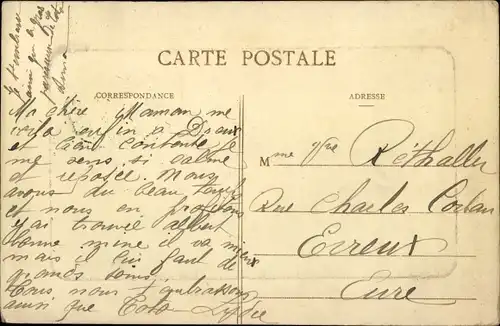 CARTE POSTALE
CORRESPONDANCE
ADRESSE
Ma chère Maman me
voila enfin a Dreux
et bien contente je
me sens si calme
et reposée. Nous
avons du beau temps
et nous en profitons
j'ai trouvé Albert
bonne mine il va mieux
mais il lui faut de
grands soins.
Tous nous t'embrassons
ainsi que Toto Lydie
Je
Mme Vve Réthaller
Rue Charles Corbeau
Evreux
Eure